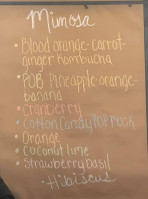 Mimosa
• Blood orange-carrot-
ginger Kombucha
• POB Pineapple-orange-
banana
• Cranberry
• Cotton Candy POP Rock
• Orange
• Coconut lime
• Strawberry Basil
• Hibiscus